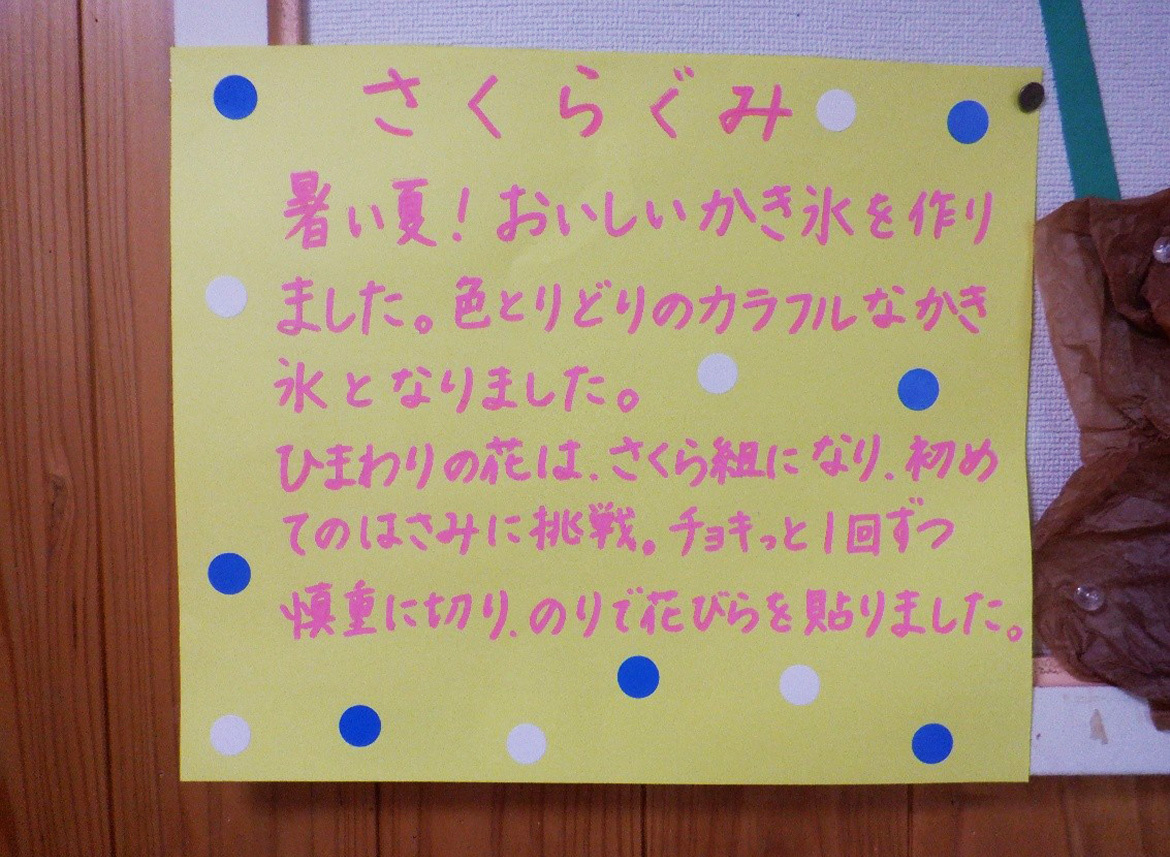 さくらぐみ
暑い夏!おいしいかき氷を作り
ました。色とりどりのカラフルなかき
氷となりました。
ひまわりの花は、さくら組になり、初め
てのはさみに挑戦。チョキっと1回ずつ
慎重に切り、のりで花びらを貼りました。